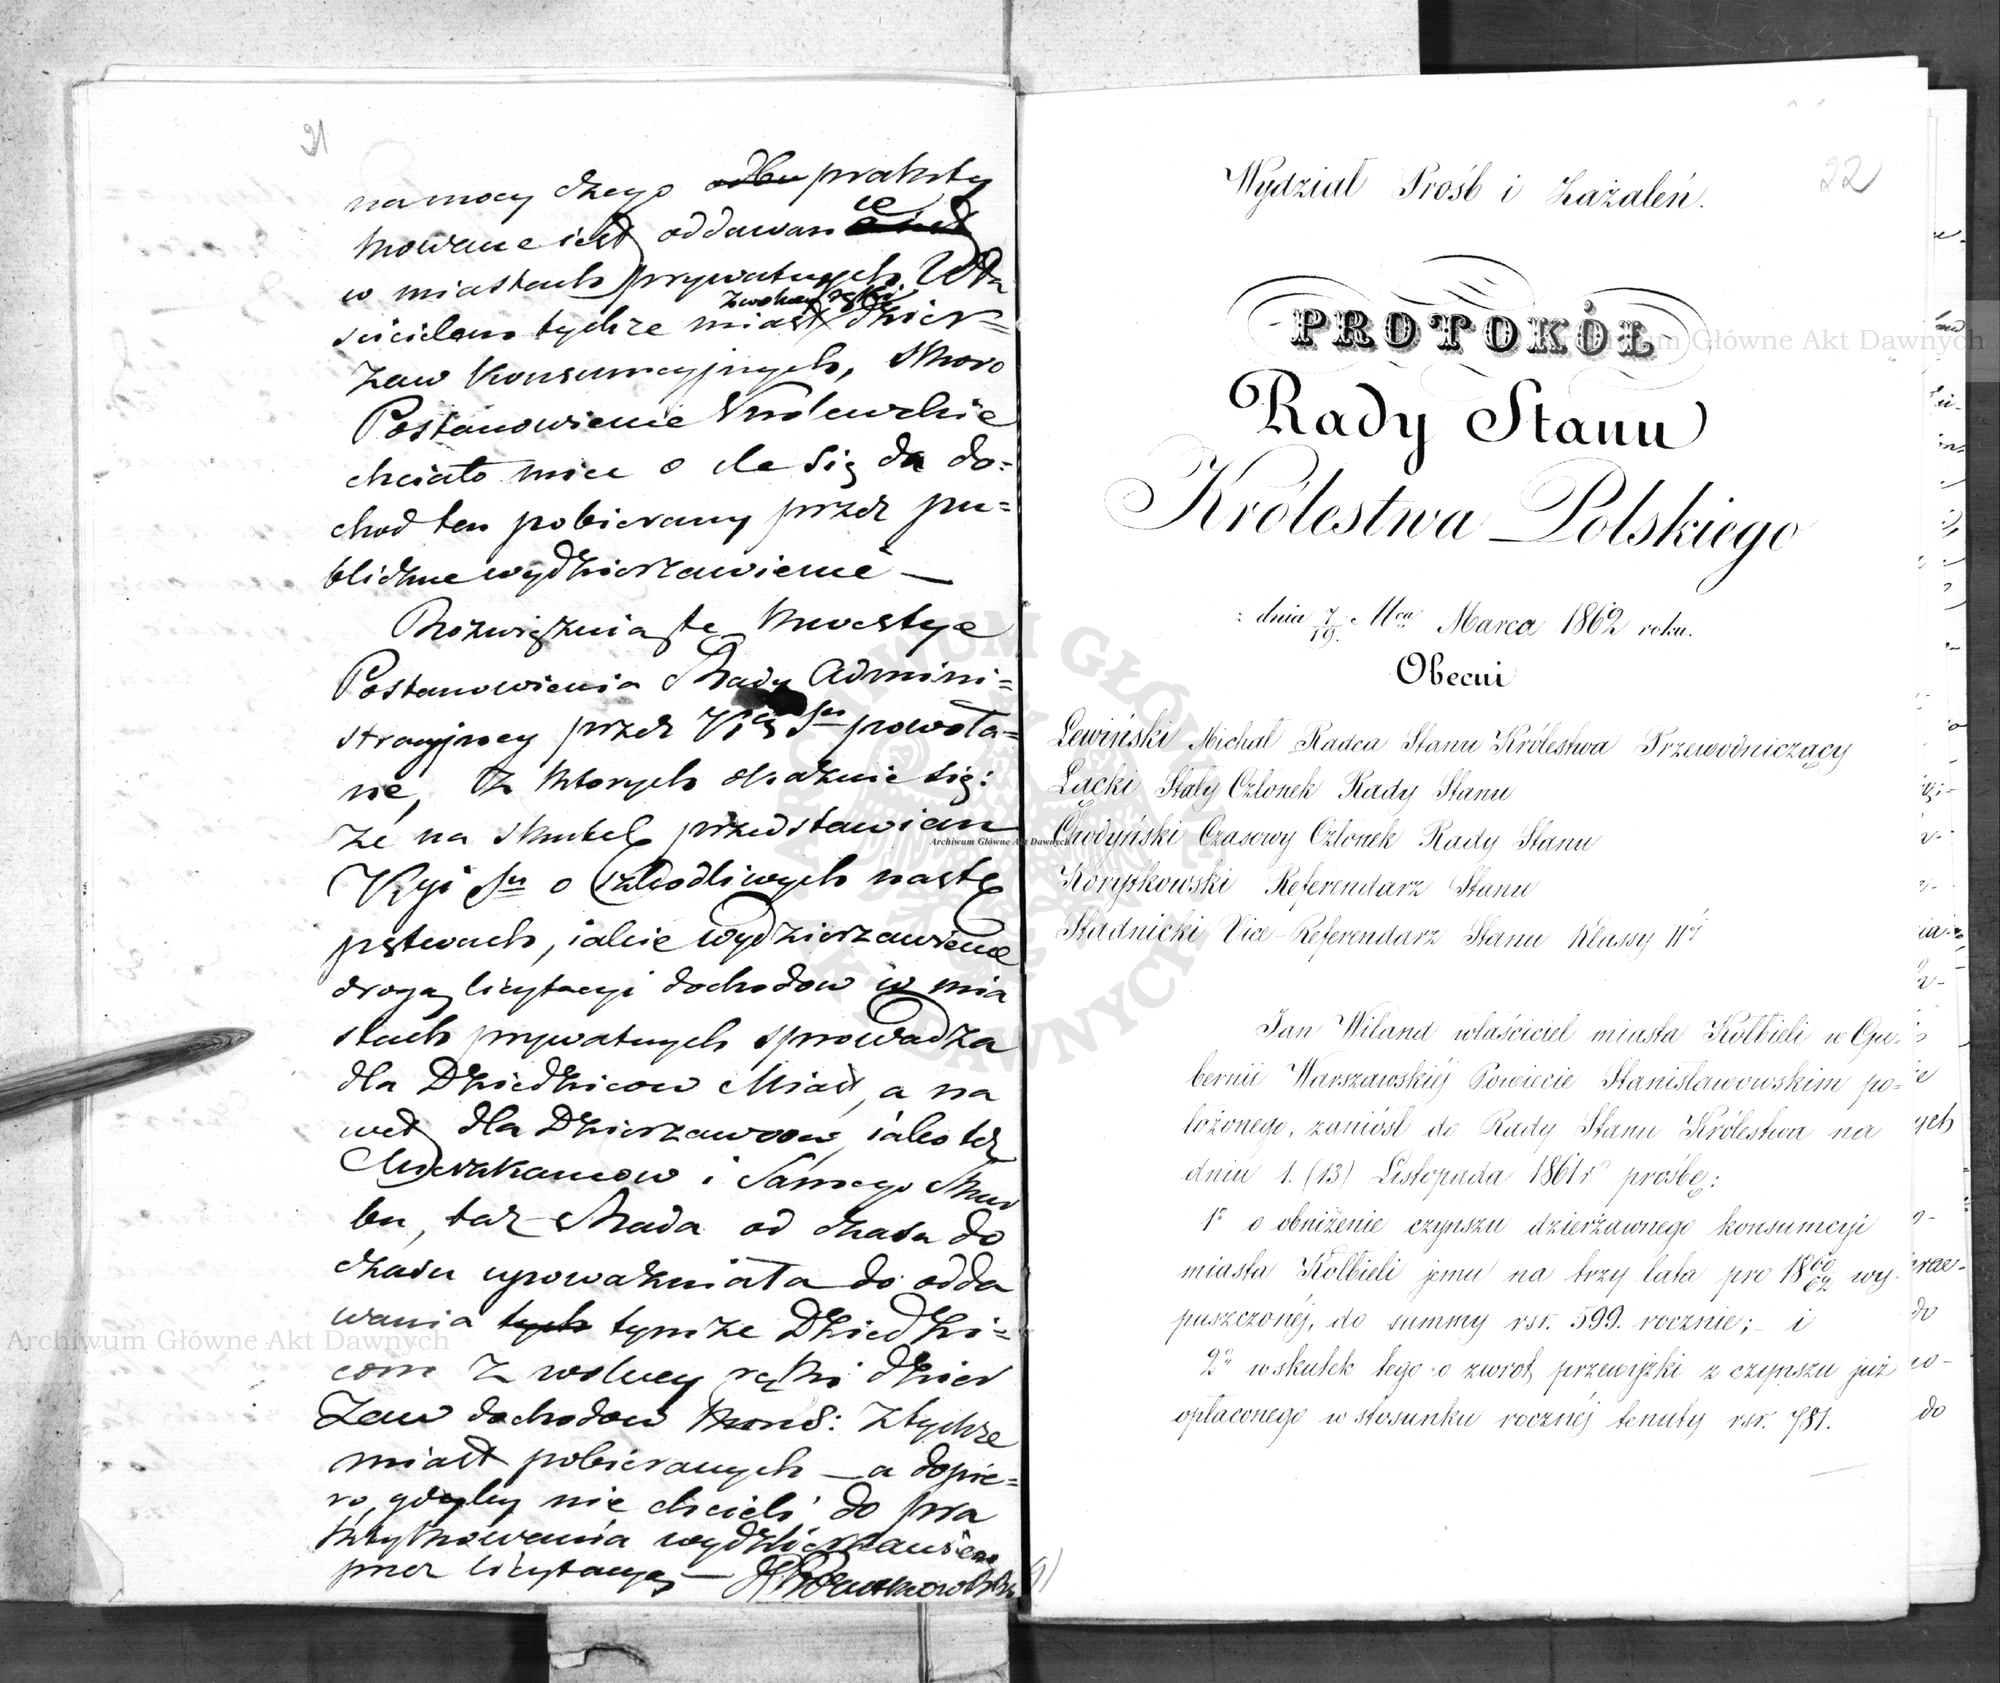 21
na mocy czego odbu prakty
kowane jest oddawan ie
w miastach prywatnych Wła
z wolnej ręki
scicielom tychże miast dzier=
żaw konsumcyjnych, skoro
Postanowienie Królewskie
chciało miec o ile się da do=
chod ten pobierany przez pu=
bliczne wydzierzawienie —
Rozwięznią tę kwestye
Postanowienia Rady Admini=
stracyjney przez powoła=
ne, z ktorych okazuie się:
że na skutek przedstawien
Kyi Su o szkodliwych nastę
pstwach, iakie wydzierzawienie
drogą licytacyi dochodow w mia
stach prywatnych sprowadza
dla Dziedzicow Miast, a na
wet dla Dzierzawcow, iako też
Mieszkancow i samego Skar
bu, taż Rada od czasu do
czasu upoważniała do odda
wania tych tymże Dziedzi=
com z wolney ręki dzier
żaw dochodow kons: z tychże
miast pobieranych — a dopie=
ro, gdyby nie chcieli do pra
ktykowania wydzierzawien
przez licytacyą —
22
Wydział Próśb i Zażaleń.
PROTOKÓŁ
Rady Stanu
Królestwa Polskiego
: dnia 7/19. Mca Marca 1862 roku.
Obecni
Lewiński Michał Radca Stanu Królestwa Przewodniczący
Łącki Stały Członek Rady Stanu
Chodyński Czasowy Członek Rady Stanu
Korytkowski Referendarz Stanu
Stadnicki Vice-Referendarz Stanu Klassy IIéj
Jan Wiland właściciel miasta Kołbieli w Gu-
bernii Warszawskiéj Powiecie Stanisławowskim po=
łożonego, zaniósł do Rady Stanu Królestwa na
dniu 1. (13) Listopada 1861 r prośbę:
1o o obniżenie czynszu dzierżawnego konsumcyi
miasta Kołbieli jemu na trzy lata pro 1860/62 wy-
puszczonéj, do summy rsr. 599. rocznie; — i
2o w skutek tego o zwrot przewyżki z czynszu już
opłaconego w stosunku rocznéj tenuty rsr. 781.
Archiwum Główne Akt Dawnych
Archiwum Główne Akt Dawnych
Archiwum Główne Akt Dawnych